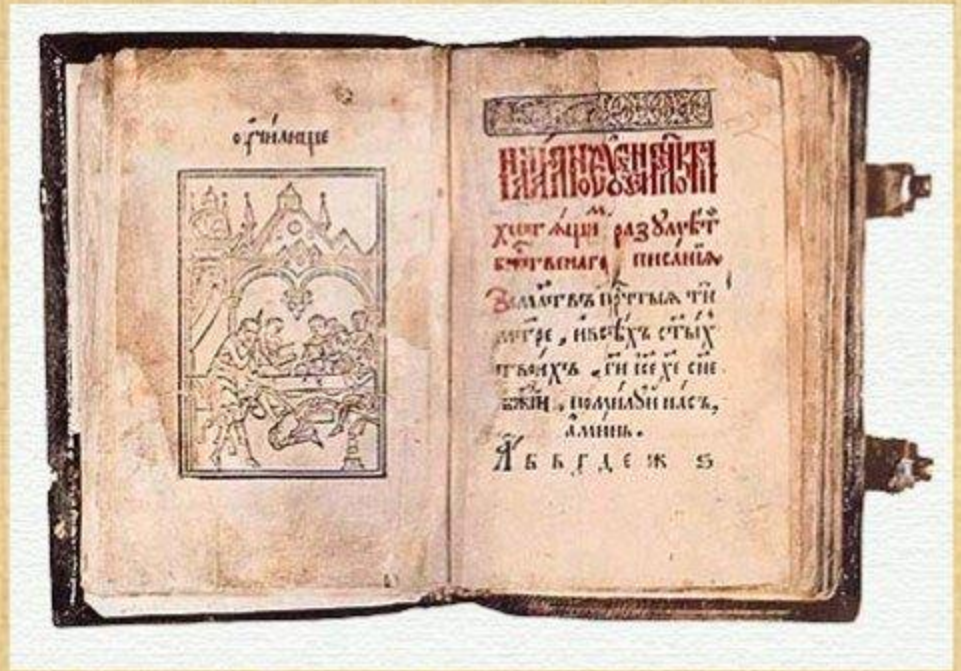 ᲂучи́лище
хотѧ́щиⷨ разꙋмѣ́ти
бжⷭ҇твенаго писа́нїѧ
За мл҃твъ прⷱ҇тыѧ ти
мт҃ре , и҆ всѣ́хъ ст҃ы́хъ
твои́хъ , ги҃ і҆се҃ хе҃ сн҃е
бж҃їи , поми́лꙋи на́съ,
а҆ми́нь.
А҆ б в г д е ж ѕ